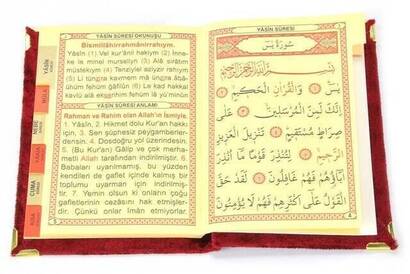 YÂSİN SÛRESİ OKUNUŞU
Bismillâhirrahmânirrahıym.
Yâsîn (1) Vel kur'ânil hakiym (2) İnne-
ke le minel murseliyn (3) Alâ sırâtım
müstekıym (4) Tenziylel aziyzir rahıym
(5) Li tünzira kavmem mâ ünzira âbâ-
ühüm fehüm ğâfilûn (6) Le kad hakkal
kavlü alâ ekserihim fehüm lâ yü'minûn
YÂSİN SÛRESİ ANLAMI
Rahman ve Rahim olan Allah'ın İsmiyle.
1. Yâsîn, 2. Hikmet dolu Kur'an hakkı
için, 3. Sen şüphesiz peygamberler-
densin, 4. Dosdoğru yol üzerindesin.
5. (Bu Kur'an) Gâlip ve çok merha-
metli Allah tarafından indirilmiştir. 6.
Babaları uyarılmamış, bu yüzden
kendileri de gaflet içinde kalmış bir
toplumu uyarman için indirilmiştir.
7. Yemin olsun ki onların çoğu
gafletlerinin cezâsını hak etmişler-
dir. Çünkü onlar îman etmiyorlar.
YÂSİN
NEBE
CUMA
YÂSİN SÛRESİ
سُورَةُ يٰسٓ
بِسْمِ اللّٰهِ الرَّحْمٰنِ الرَّحِيمِ
يٰسٓ ﴿١﴾ وَالْقُرْاٰنِ الْحَكِيمِ ﴿٢﴾
اِنَّكَ لَمِنَ الْمُرْسَلِينَ ﴿٣﴾ عَلٰى
صِرَاطٍ مُسْتَقِيمٍ ﴿٤﴾ تَنْزِيلَ الْعَزِيزِ
الرَّحِيمِ ﴿٥﴾ لِتُنْذِرَ قَوْمًا مَٓا اُنْذِرَ
اٰبَٓاؤُهُمْ فَهُمْ غَافِلُونَ ﴿٦﴾ لَقَدْ حَقَّ
الْقَوْلُ عَلٰٓى اَكْثَرِهِمْ فَهُمْ لَا يُؤْمِنُونَ